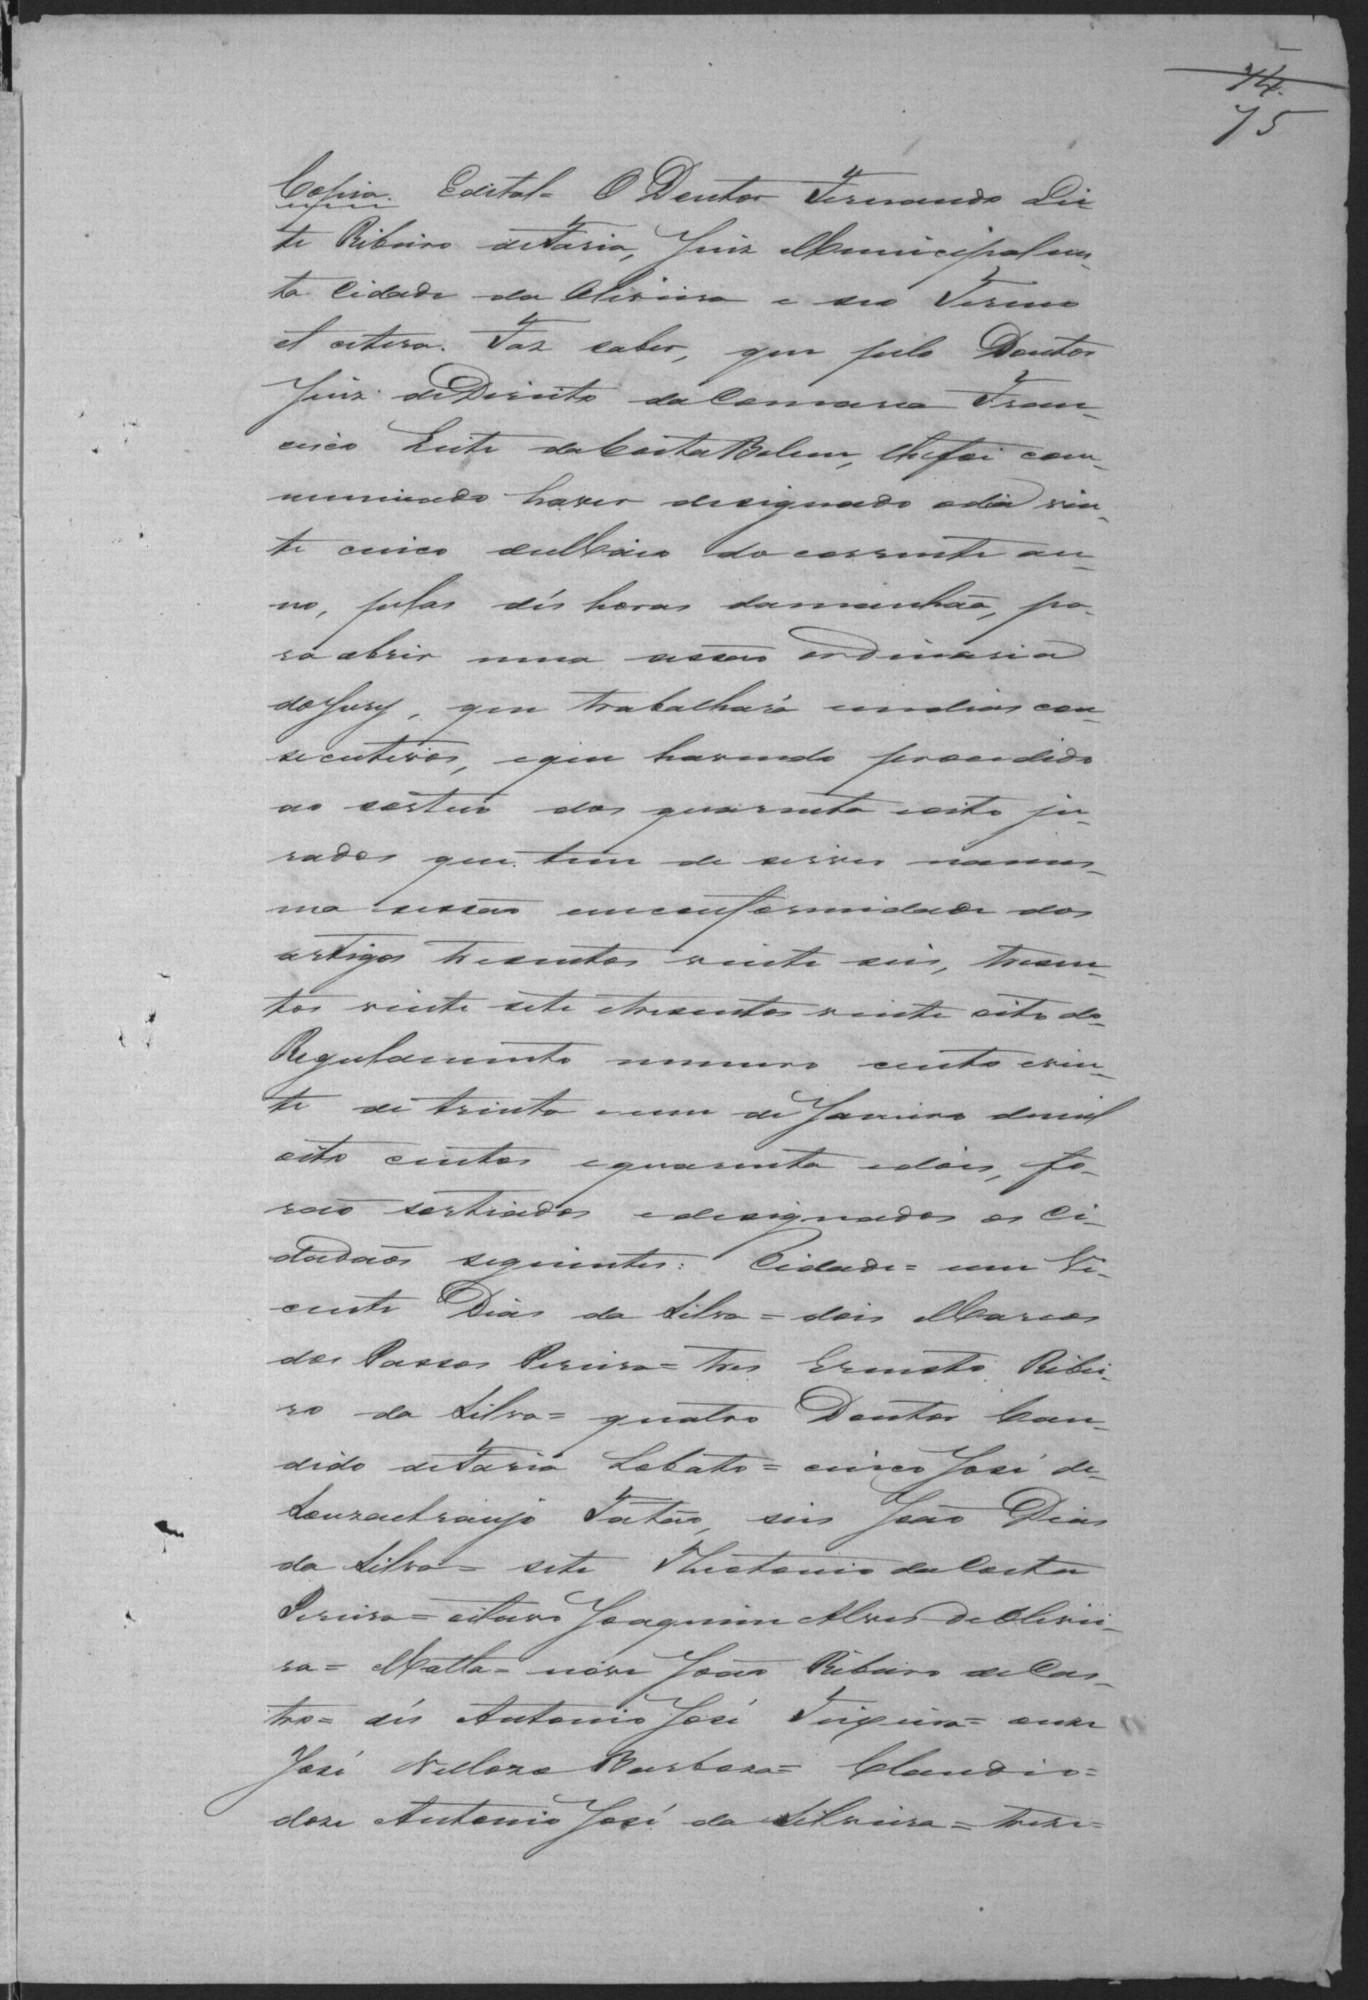 74.
75
Copia. Edital= O Doutor Fernando Lei-
te Ribeiro de Faria, Juiz Municipal nes-
ta Cidade da Oliveira e seo Termo
et cetera. Faz saber, que pelo Doutor
Juiz de Direito da Comarca Fran-
cisco Leite da Costa Belem, lhe foi com-
municado haver designado o dia vin-
te cinco de Maio do corrente an-
no, pelas dés horas da manhão, pa-
ra abrir uma sessão ordinaria
do Jury, que trabalhará em dias con-
secutivos, e que havendo procedido
ao sorteio dos quarenta e oito ju-
rados que tem de servir na mes-
ma sessão em conformidade dos
artigos tresentos vinte seis, tresen-
tos vinte sete e tresentos vinte oito do
Regulamento numero cento e vin-
te de trinta e um de Janeiro de mil
oito centos e quarenta e dois, fo-
rão sortiados e designados os Ci-
dadãos seguintes: Cidade= um Vi-
cente Dias da Silva= dois Marcos
dos Passos Pereira= tres Ernesto Ribei-
ro da Silva= quatro Doutor Can-
dido de Faria Lobato= cinco José de
Souza Araujo Fatão, seis João Dias
da Silva= sete Theotonio da Costa
Pereira= oitavo Joaquim Alves de Olivei-
ra= Matta= nove João Ribeiro de Cas-
tro= dés Antonio José Teixeira= onze
José Velloso Barboza= Claudio=
doze Antonio José da Silveira= treze=